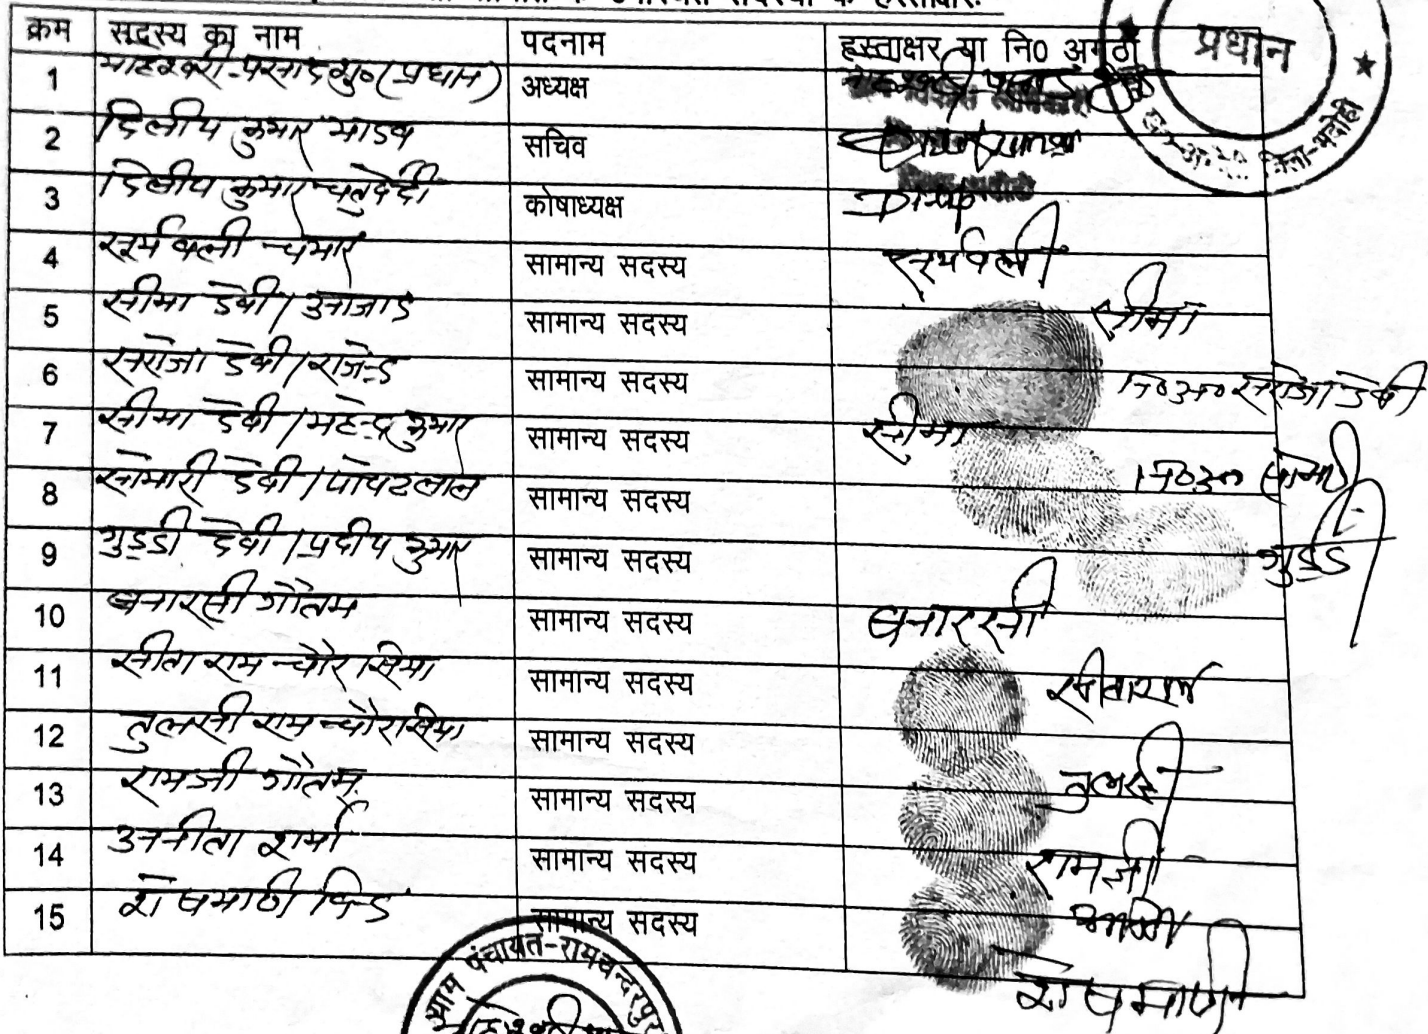 उपस्थित सदस्यों के हस्ताक्षर
क्रम सदस्य का नाम पदनाम हस्ताक्षर या नि० अंगूठा
प्रधान
जिला-भदोही
1 माहेश्वरी प्रसाद (प्रधान) अध्यक्ष
2 दिलीप कुमार यादव सचिव
3 दिलीप कुमार चतुर्वेदी कोषाध्यक्ष Dilip
4 सूर्यबली चमार सामान्य सदस्य सूर्यवली
5 सीमा देवी / आजाद सामान्य सदस्य सीमा
6 सरोजा देवी / राजेन्द्र सामान्य सदस्य नि०अ० सरोजा देवी
7 सीमा देवी / महेन्द्र कुमार सामान्य सदस्य सीमा
8 सोमारी देवी / पोपटलाल सामान्य सदस्य नि०अ० सोमारी
9 गुड्डी देवी / प्रदीप कुमार सामान्य सदस्य गुड्डी
10 बनारसी गौतम सामान्य सदस्य बनारसी
11 सीता राम चौरसिया सामान्य सदस्य सीताराम
12 तुलसी राम चौरसिया सामान्य सदस्य तुलसी
13 रामजी गौतम सामान्य सदस्य रामजी
14 अनीता शर्मा सामान्य सदस्य
15 शेषमणी बिन्द सामान्य सदस्य शेषमणी
ग्राम पंचायत-रामचन्दरपुर